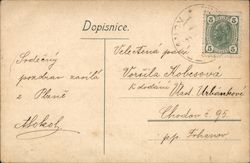 Dopisnice.
Srdečný
pozdrav zasílá
z Plané
Velectěná paní
Voršila Kobesová
k dodání Vlad. Urbánkové
Chodov č 95
p/p.
5 5
5 5